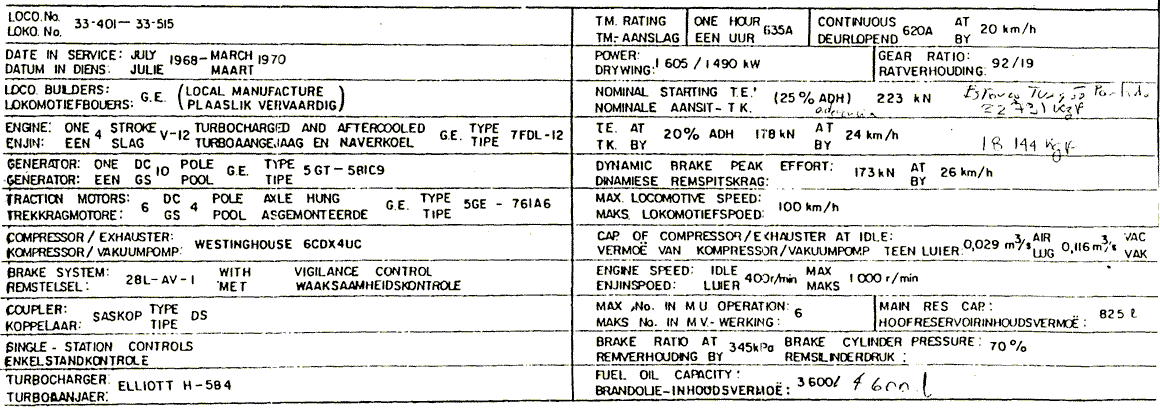 LOCO. No. 33-401 — 33-515
LOKO. No.
DATE IN SERVICE: JULY 1968 — MARCH 1970
DATUM IN DIENS: JULIE MAART
LOCO. BUILDERS: G.E. (LOCAL MANUFACTURE
LOKOMOTIEFBOUERS: PLAASLIK VERVAARDIG)
ENGINE: ONE 4 STROKE V-12 TURBOCHARGED AND AFTERCOOLED G.E. TYPE 7FDL-12
ENJIN: EEN SLAG TURBOAANGEJAAG EN NAVERKOEL TIPE
GENERATOR: ONE DC 10 POLE G.E. TYPE 5GT-581C9
GENERATOR: EEN GS POOL TIPE
TRACTION MOTORS: 6 DC 4 POLE AXLE HUNG G.E. TYPE 5GE - 761A6
TREKKRAGMOTORE: GS POOL ASGEMONTEERDE TIPE
COMPRESSOR / EXHAUSTER: WESTINGHOUSE 6CDX4UC
KOMPRESSOR / VAKUUMPOMP:
BRAKE SYSTEM: 28L-AV-1 WITH VIGILANCE CONTROL
REMSTELSEL: MET WAAKSAAMHEIDSKONTROLE
COUPLER: SASKOP TYPE DS
KOPPELAAR: TIPE
SINGLE - STATION CONTROLS
ENKELSTANDKONTROLE
TURBOCHARGER: ELLIOTT H-584
TURBOAANJAER:
T.M. RATING ONE HOUR 635A CONTINUOUS 620A AT 20 km/h
TM.- AANSLAG EEN UUR DEURLOPEND BY
POWER: 1 605 / 1 490 kW GEAR RATIO: 92/19
DRYWING: RATVERHOUDING:
NOMINAL STARTING T.E.: (25% ADH) 223 kN
NOMINALE AANSIT - T.K.
22 731 Kgf
T.E. AT 20% ADH 178 kN AT 24 km/h
TK. BY BY
18 144 Kgf
DYNAMIC BRAKE PEAK EFFORT: 173 kN AT 26 km/h
DINAMIESE REMSPITSKRAG: BY
MAX. LOCOMOTIVE SPEED: 100 km/h
MAKS. LOKOMOTIEFSPOED:
CAP. OF COMPRESSOR/EXHAUSTER AT IDLE: 0,029 m³/s AIR 0,116 m³/s VAC
VERMOË VAN KOMPRESSOR/VAKUUMPOMP TEEN LUIER: LUG VAK
ENGINE SPEED: IDLE 400r/min MAX 1 000 r/min
ENJINSPOED: LUIER MAKS
MAX. No. IN M.U. OPERATION: 6 MAIN RES CAP.: 825 ℓ
MAKS No. IN M.V.- WERKING: HOOFRESERVOIRINHOUDSVERMOË:
BRAKE RATIO AT 345kPa BRAKE CYLINDER PRESSURE: 70%
REMVERHOUDING BY REMSILINDERDRUK :
FUEL OIL CAPACITY: 3 600ℓ 4 600 l
BRANDOLIE-INHOUDSVERMOË: